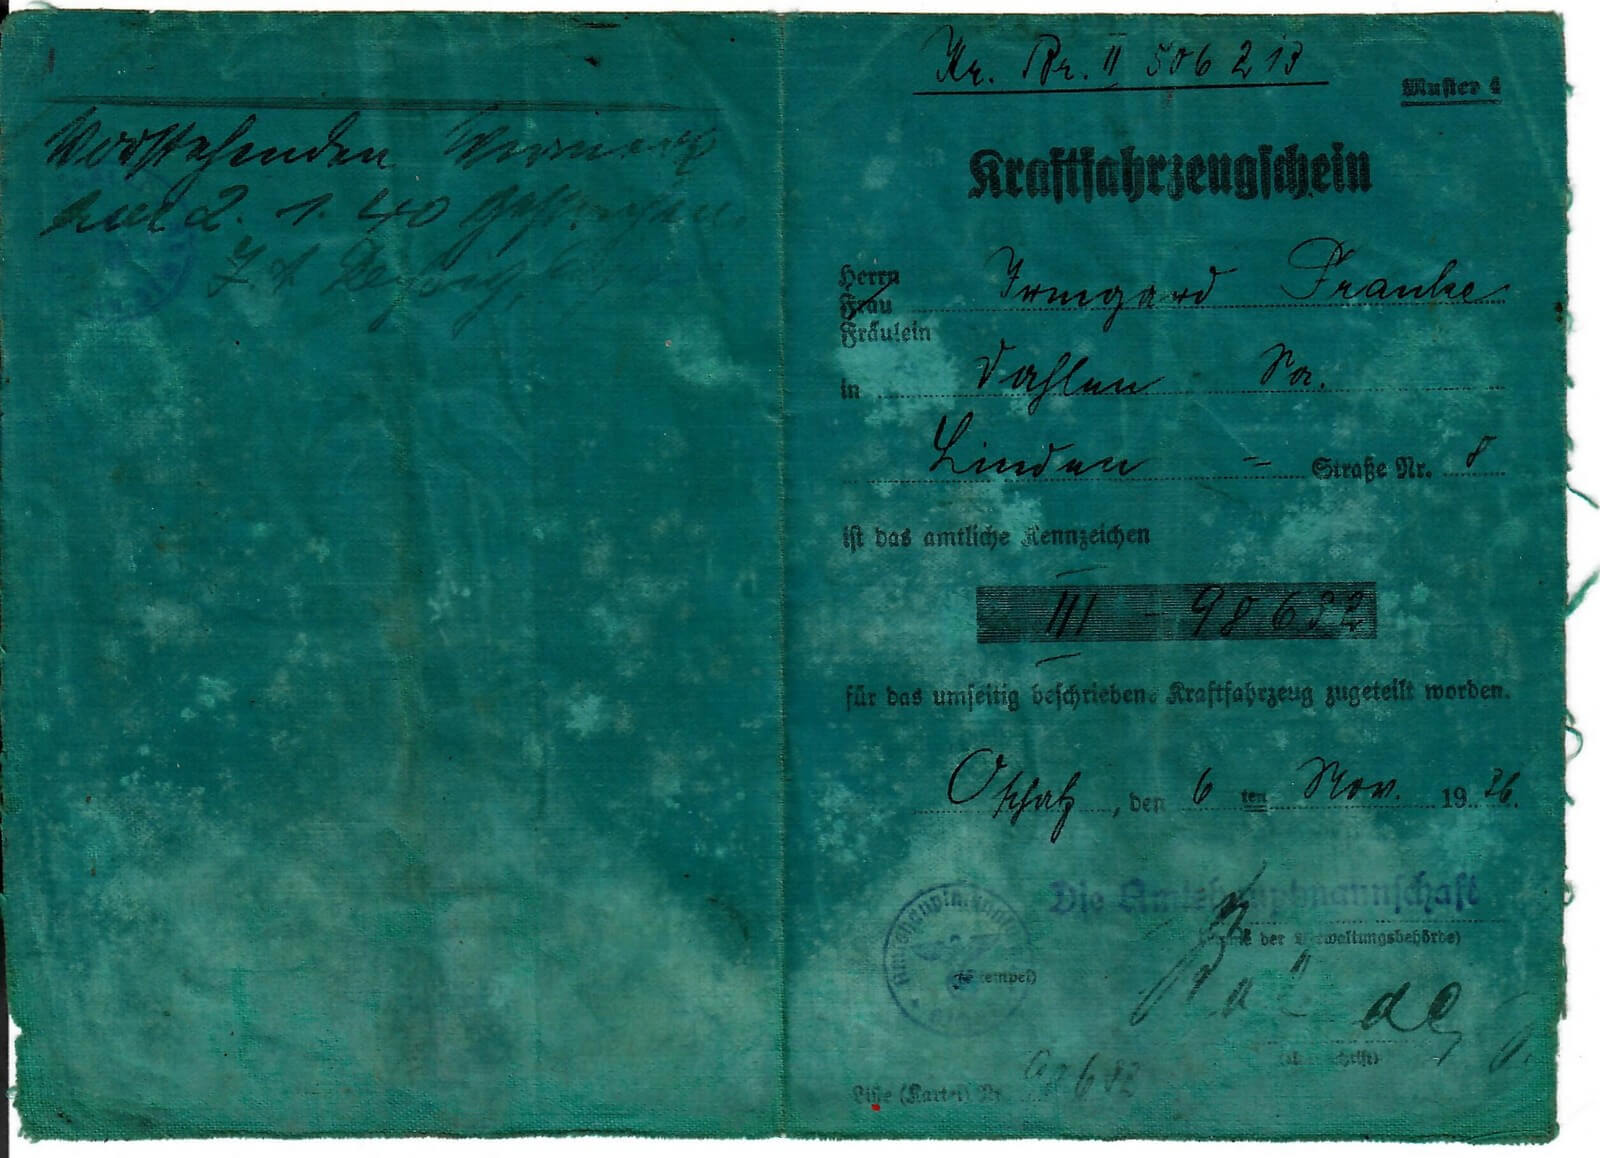 Vorstehenden Vermerk
am 2. 1. 40 gestrichen.
Kr. Br. II 506 213
Muster 4
Kraftfahrzeugschein
Herrn
Frau
Fräulein
Irmgard Franke
in Dahlen Sa.
Linden = Straße Nr. 8
ist das amtliche Kennzeichen
III - 98682
für das umseitig beschriebene Kraftfahrzeug zugeteilt worden.
Oschatz, den 6 ten Nov. 1936.
Die Amtshauptmannschaft
(Name der Verwaltungsbehörde)
(Stempel)
(Unterschrift)
Liste (Kartei) Nr. 98682